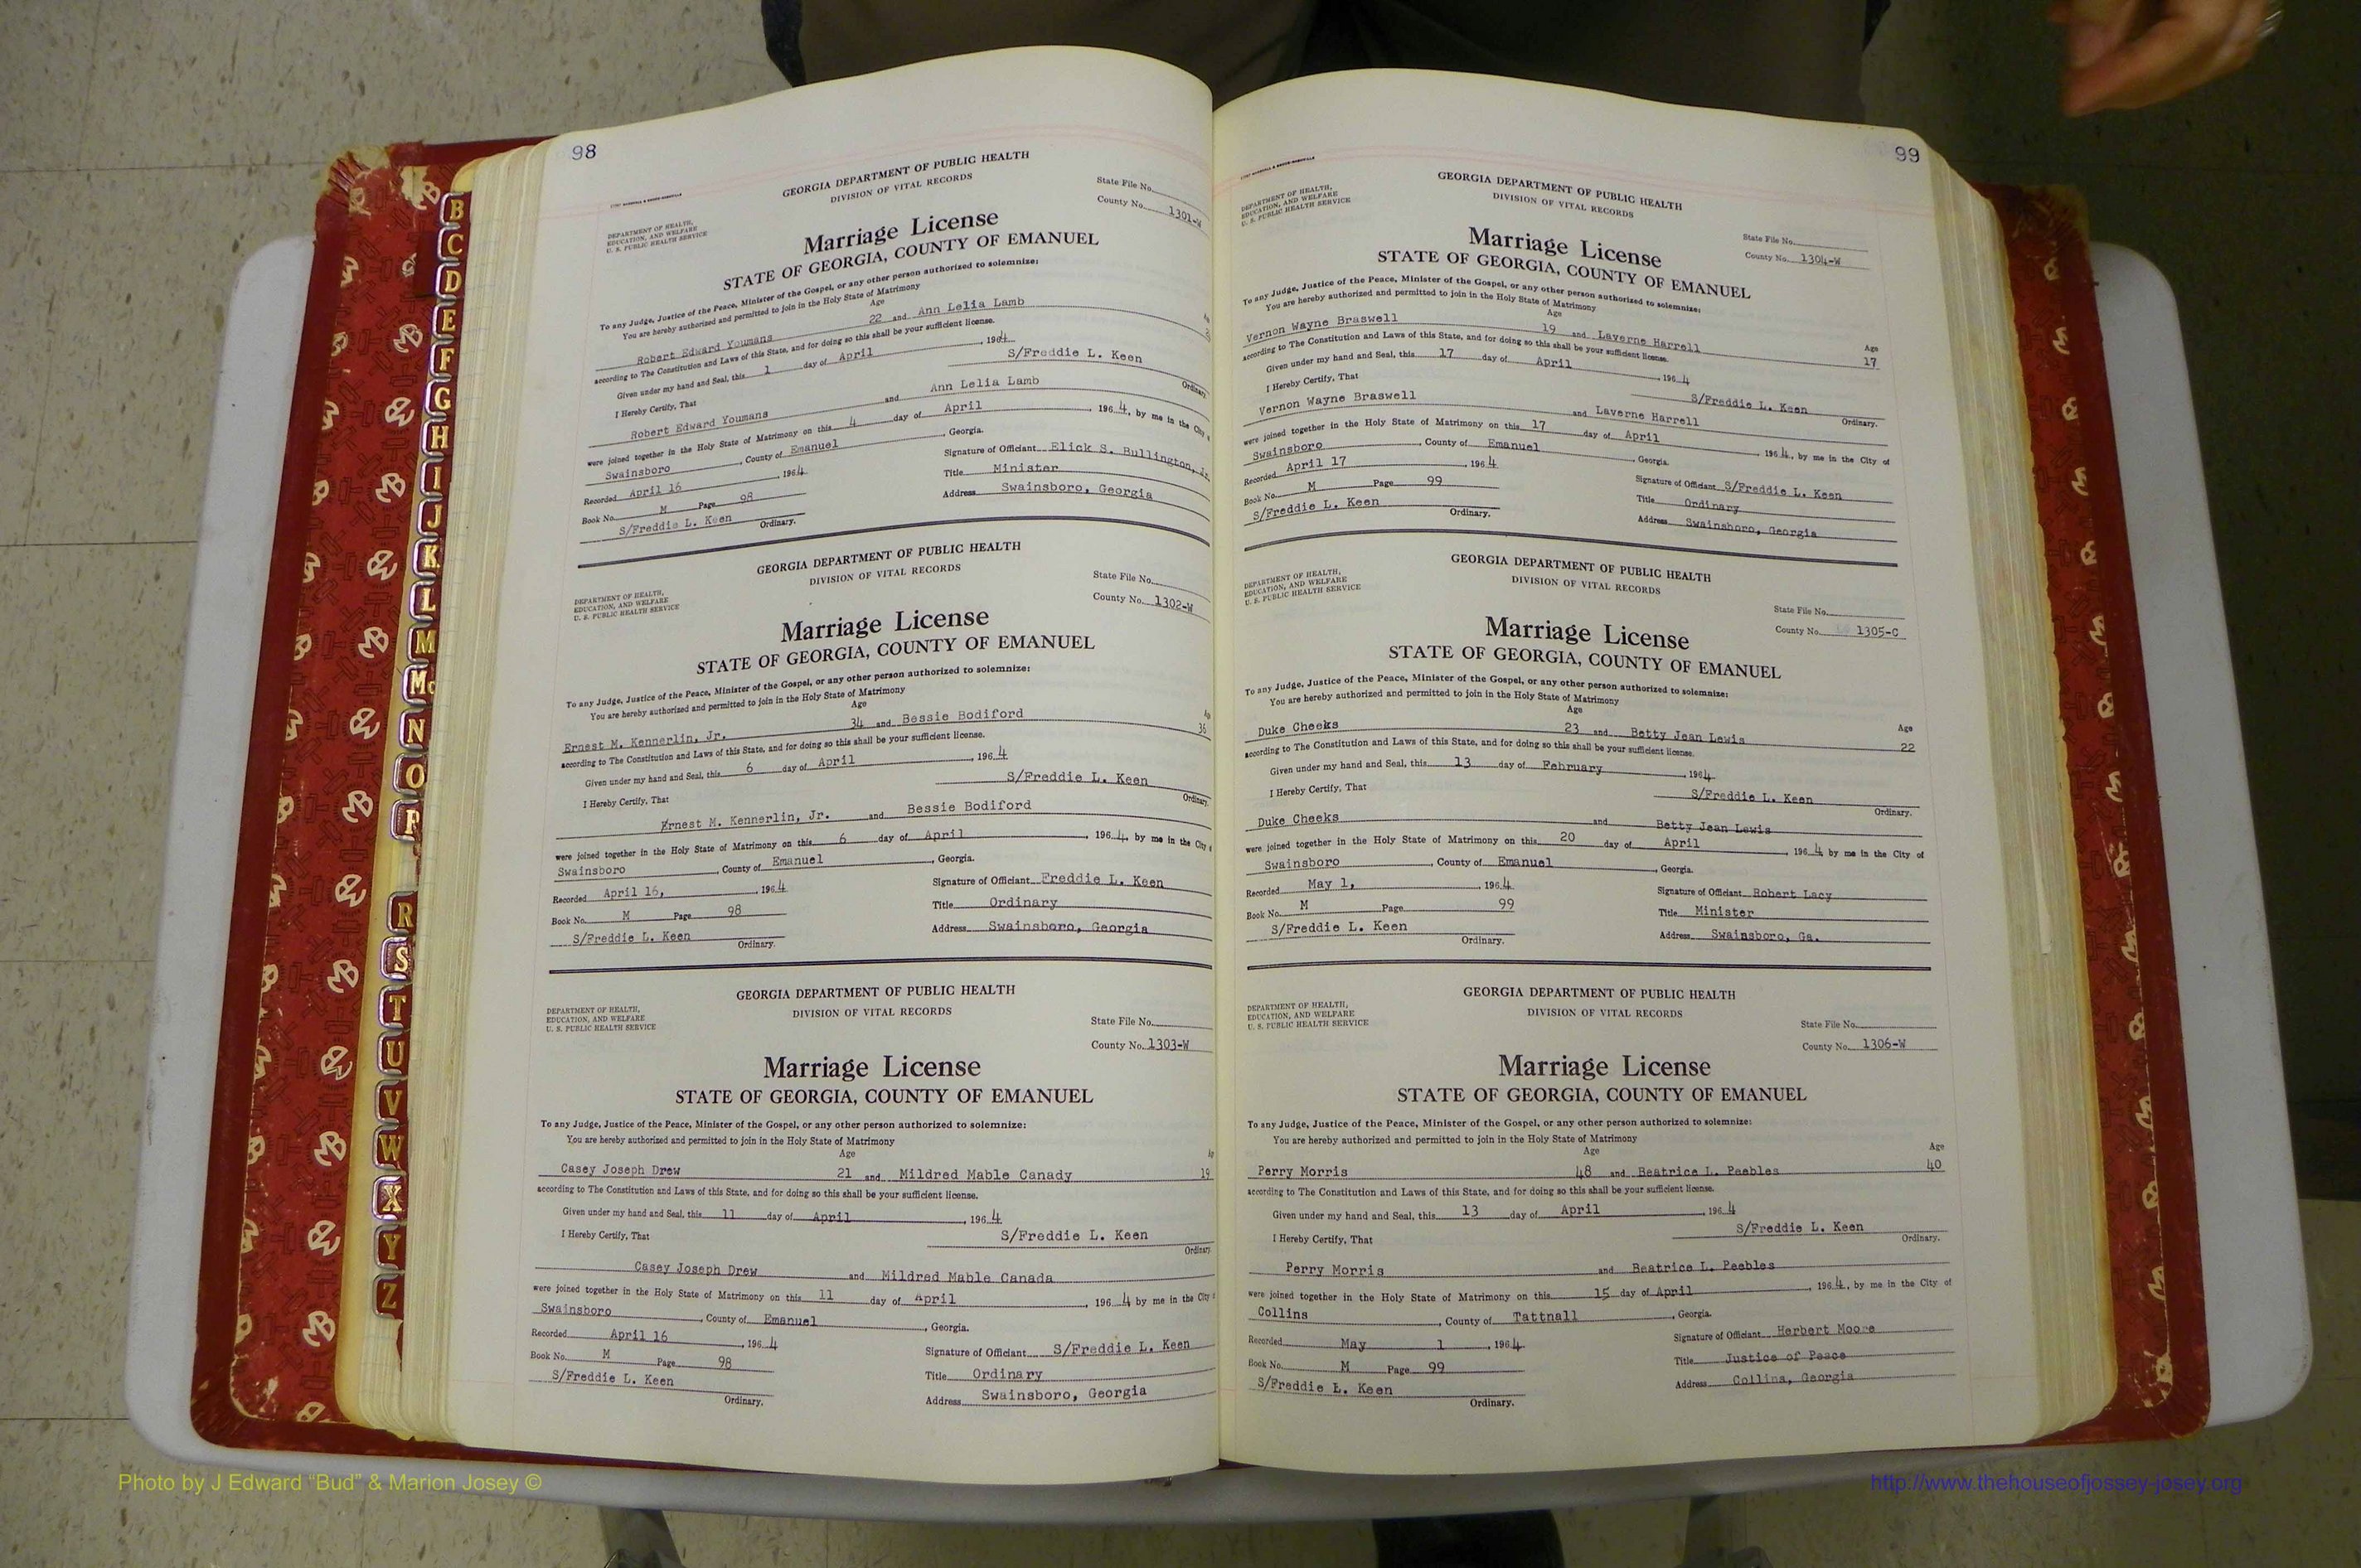 98
GEORGIA DEPARTMENT OF PUBLIC HEALTH
DIVISION OF VITAL RECORDS
DEPARTMENT OF HEALTH,
EDUCATION, AND WELFARE
U. S. PUBLIC HEALTH SERVICE
State File No.
County No. 1301-W
Marriage License
STATE OF GEORGIA, COUNTY OF EMANUEL
To any Judge, Justice of the Peace, Minister of the Gospel, or any other person authorized to solemnize:
You are hereby authorized and permitted to join in the Holy State of Matrimony
Age
Robert Edward Youmans 22 and Ann Lelia Lamb
according to The Constitution and Laws of this State, and for doing so this shall be your sufficient license.
Given under my hand and Seal, this 1 day of April, 1964
S/Freddie L. Keen
I Hereby Certify, That Ordinary.
Robert Edward Youmans and Ann Lelia Lamb
were joined together in the Holy State of Matrimony on this 4 day of April, 1964, by me in the City
Swainsboro, County of Emanuel, Georgia.
Recorded April 16, 1964 Signature of Officiant Elick S. Bullington,
Book No. M Page 98 Title Minister
S/Freddie L. Keen Address Swainsboro, Georgia
Ordinary.
GEORGIA DEPARTMENT OF PUBLIC HEALTH
DIVISION OF VITAL RECORDS
DEPARTMENT OF HEALTH,
EDUCATION, AND WELFARE
U. S. PUBLIC HEALTH SERVICE
State File No.
County No. 1302-W
Marriage License
STATE OF GEORGIA, COUNTY OF EMANUEL
To any Judge, Justice of the Peace, Minister of the Gospel, or any other person authorized to solemnize:
You are hereby authorized and permitted to join in the Holy State of Matrimony
Age
Ernest M. Kennerlin, Jr. 34 and Bessie Bodiford
according to The Constitution and Laws of this State, and for doing so this shall be your sufficient license.
Given under my hand and Seal, this 6 day of April, 1964
S/Freddie L. Keen
I Hereby Certify, That Ordinary.
Ernest M. Kennerlin, Jr. and Bessie Bodiford
were joined together in the Holy State of Matrimony on this 6 day of April, 1964, by me in the City
Swainsboro, County of Emanuel, Georgia.
Recorded April 16, 1964 Signature of Officiant Freddie L. Keen
Book No. M Page 98 Title Ordinary
S/Freddie L. Keen Address Swainsboro, Georgia
Ordinary.
GEORGIA DEPARTMENT OF PUBLIC HEALTH
DIVISION OF VITAL RECORDS
DEPARTMENT OF HEALTH,
EDUCATION, AND WELFARE
U. S. PUBLIC HEALTH SERVICE
State File No.
County No. 1303-W
Marriage License
STATE OF GEORGIA, COUNTY OF EMANUEL
To any Judge, Justice of the Peace, Minister of the Gospel, or any other person authorized to solemnize:
You are hereby authorized and permitted to join in the Holy State of Matrimony
Age
Casey Joseph Drew 21 and Mildred Mable Canady 19
according to The Constitution and Laws of this State, and for doing so this shall be your sufficient license.
Given under my hand and Seal, this 11 day of April, 1964
S/Freddie L. Keen
I Hereby Certify, That Ordinary.
Casey Joseph Drew and Mildred Mable Canada
were joined together in the Holy State of Matrimony on this 11 day of April, 1964 by me in the City
Swainsboro, County of Emanuel, Georgia.
Recorded April 16, 1964 Signature of Officiant S/Freddie L. Keen
Book No. M Page 98 Title Ordinary
S/Freddie L. Keen Address Swainsboro, Georgia
Ordinary.
99
GEORGIA DEPARTMENT OF PUBLIC HEALTH
DIVISION OF VITAL RECORDS
DEPARTMENT OF HEALTH,
EDUCATION, AND WELFARE
U. S. PUBLIC HEALTH SERVICE
State File No.
County No. 1304-W
Marriage License
STATE OF GEORGIA, COUNTY OF EMANUEL
To any Judge, Justice of the Peace, Minister of the Gospel, or any other person authorized to solemnize:
You are hereby authorized and permitted to join in the Holy State of Matrimony
Age Age
Vernon Wayne Braswell 19 and Laverne Harrell 17
according to The Constitution and Laws of this State, and for doing so this shall be your sufficient license.
Given under my hand and Seal, this 17 day of April, 1964
S/Freddie L. Keen
I Hereby Certify, That Ordinary.
Vernon Wayne Braswell and Laverne Harrell
were joined together in the Holy State of Matrimony on this 17 day of April, 1964, by me in the City of
Swainsboro, County of Emanuel, Georgia.
Recorded April 17, 1964 Signature of Officiant S/Freddie L. Keen
Book No. M Page 99 Title Ordinary
S/Freddie L. Keen Address Swainsboro, Georgia
Ordinary.
GEORGIA DEPARTMENT OF PUBLIC HEALTH
DIVISION OF VITAL RECORDS
DEPARTMENT OF HEALTH,
EDUCATION, AND WELFARE
U. S. PUBLIC HEALTH SERVICE
State File No.
County No. 1305-C
Marriage License
STATE OF GEORGIA, COUNTY OF EMANUEL
To any Judge, Justice of the Peace, Minister of the Gospel, or any other person authorized to solemnize:
You are hereby authorized and permitted to join in the Holy State of Matrimony
Age Age
Duke Cheeks 23 and Betty Jean Lewis 22
according to The Constitution and Laws of this State, and for doing so this shall be your sufficient license.
Given under my hand and Seal, this 13 day of February, 1964
S/Freddie L. Keen
I Hereby Certify, That Ordinary.
Duke Cheeks and Betty Jean Lewis
were joined together in the Holy State of Matrimony on this 20 day of April, 1964 by me in the City of
Swainsboro, County of Emanuel, Georgia.
Recorded May 1, 1964 Signature of Officiant Robert Lacy
Book No. M Page 99 Title Minister
S/Freddie L. Keen Address Swainsboro, Ga.
Ordinary.
GEORGIA DEPARTMENT OF PUBLIC HEALTH
DIVISION OF VITAL RECORDS
DEPARTMENT OF HEALTH,
EDUCATION, AND WELFARE
U. S. PUBLIC HEALTH SERVICE
State File No.
County No. 1306-W
Marriage License
STATE OF GEORGIA, COUNTY OF EMANUEL
To any Judge, Justice of the Peace, Minister of the Gospel, or any other person authorized to solemnize:
You are hereby authorized and permitted to join in the Holy State of Matrimony
Age Age
Perry Morris 48 and Beatrice L. Peebles 40
according to The Constitution and Laws of this State, and for doing so this shall be your sufficient license.
Given under my hand and Seal, this 13 day of April, 1964
S/Freddie L. Keen
I Hereby Certify, That Ordinary.
Perry Morris and Beatrice L. Peebles
were joined together in the Holy State of Matrimony on this 15 day of April, 1964, by me in the City of
Collins, County of Tattnall, Georgia.
Recorded May 1, 1964 Signature of Officiant Herbert Moore
Book No. M Page 99 Title Justice of Peace
S/Freddie L. Keen Address Collins, Georgia
Ordinary.
B
C
D
E
F
G
H
I
J
K
L
M
Mc
N
O
P
R
S
T
U
V
W
X
Y
Z
Photo by J Edward “Bud” & Marion Josey ©
http://www.thehouseofjossey-josey.org